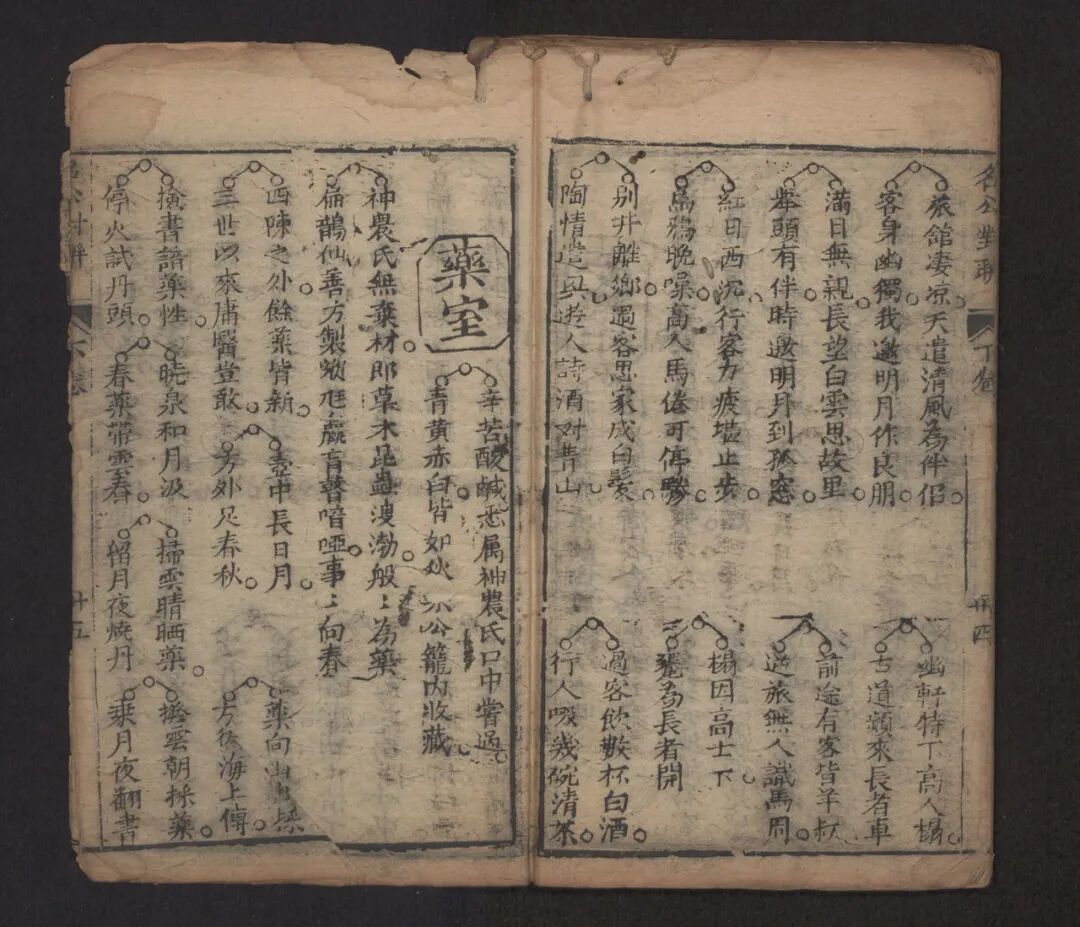 名公對聯
下卷
廿四
旅館凄凉天遣清風為伴侣
客身幽獨我邀明月作良朋
幽軒特下高人榻
古道頻來長者車
滿目無親長望白雲思故里
舉頭有伴時邀明月到孤窓
前途有客皆羊叔
逆旅無人識馬周
紅日西沉行客力疲堪止步
烏鴉晚噪高人馬倦可停驂
榻因高士下
爲長者開
別井離鄉過客思家成白髪
陶情遣興遊人詩酒对青山
過客飲數杯白酒
行人啜幾碗清茶
藥室
辛苦酸鹹悉属神農氏口中嘗過
青黄赤白皆如狄公籠内收藏
神農氏無棄材即草木昆蟲溲渤般〻為藥
扁鵲仙善方製雖尫羸盲聾喑啞事〻向春
四陳之外餘藥皆新
三世以來庸醫豈敢
壺中長日月
方外足春秋
藥向山中採
方從海上傳
撿書諳藥性
停火試丹頭
曉泉和月汲
春藥帶雲舂
掃雲晴晒藥
留月夜燒丹
撥雲朝採藥
乘月夜翻書
下卷
廿五